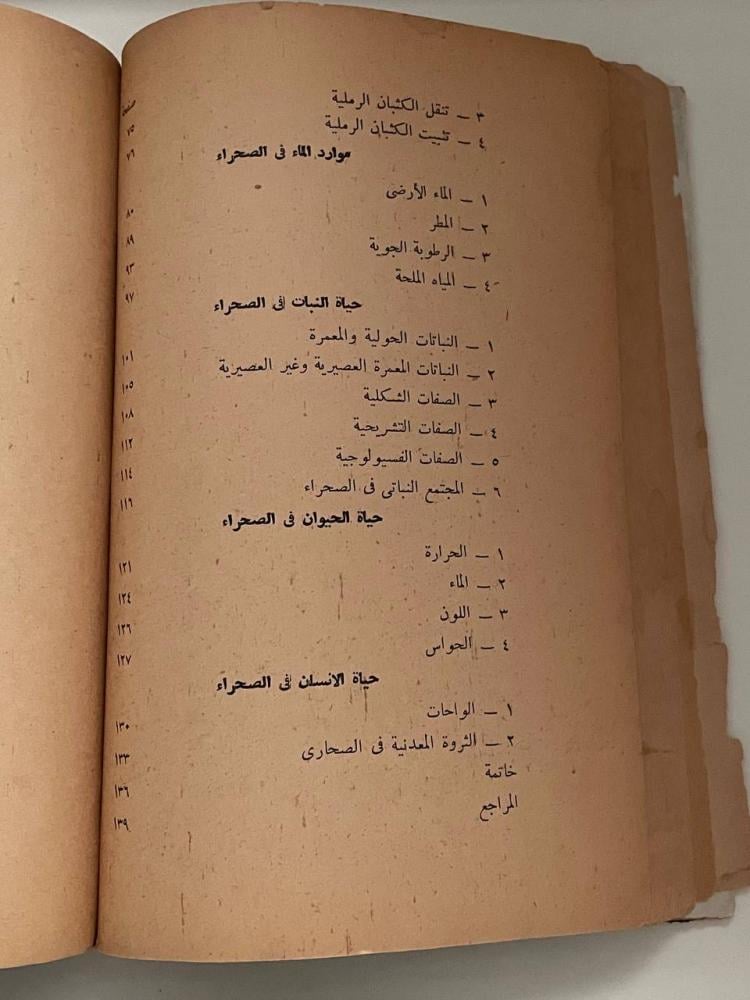 صفحة
٣ — تنقل الكثبان الرملية ٧٥
٤ — تثبيت الكثبان الرملية ٧٦
موارد الماء فى الصحراء
١ — الماء الأرضى ٨٠
٢ — المطر ٨٩
٣ — الرطوبة الجوية ٩٣
٤ — المياه الملحة ٩٧
حياة النبات فى الصحراء
١ — النباتات الحولية والمعمرة ١٠١
٢ — النباتات المعمرة العصيرية وغير العصيرية ١٠٥
٣ — الصفات الشكلية ١٠٨
٤ — الصفات التشريحية ١١٢
٥ — الصفات الفسيولوجية ١١٤
٦ — المجتمع النباتى فى الصحراء ١١٦
حياة الحيوان فى الصحراء
١ — الحرارة ١٢١
٢ — الماء ١٢٤
٣ — اللون ١٢٦
٤ — الحواس ١٢٧
حياة الانسان فى الصحراء
١ — الواحات ١٣٠
٢ — الثروة المعدنية فى الصحارى ١٣٣
خاتمة ١٣٦
المراجع ١٣٩